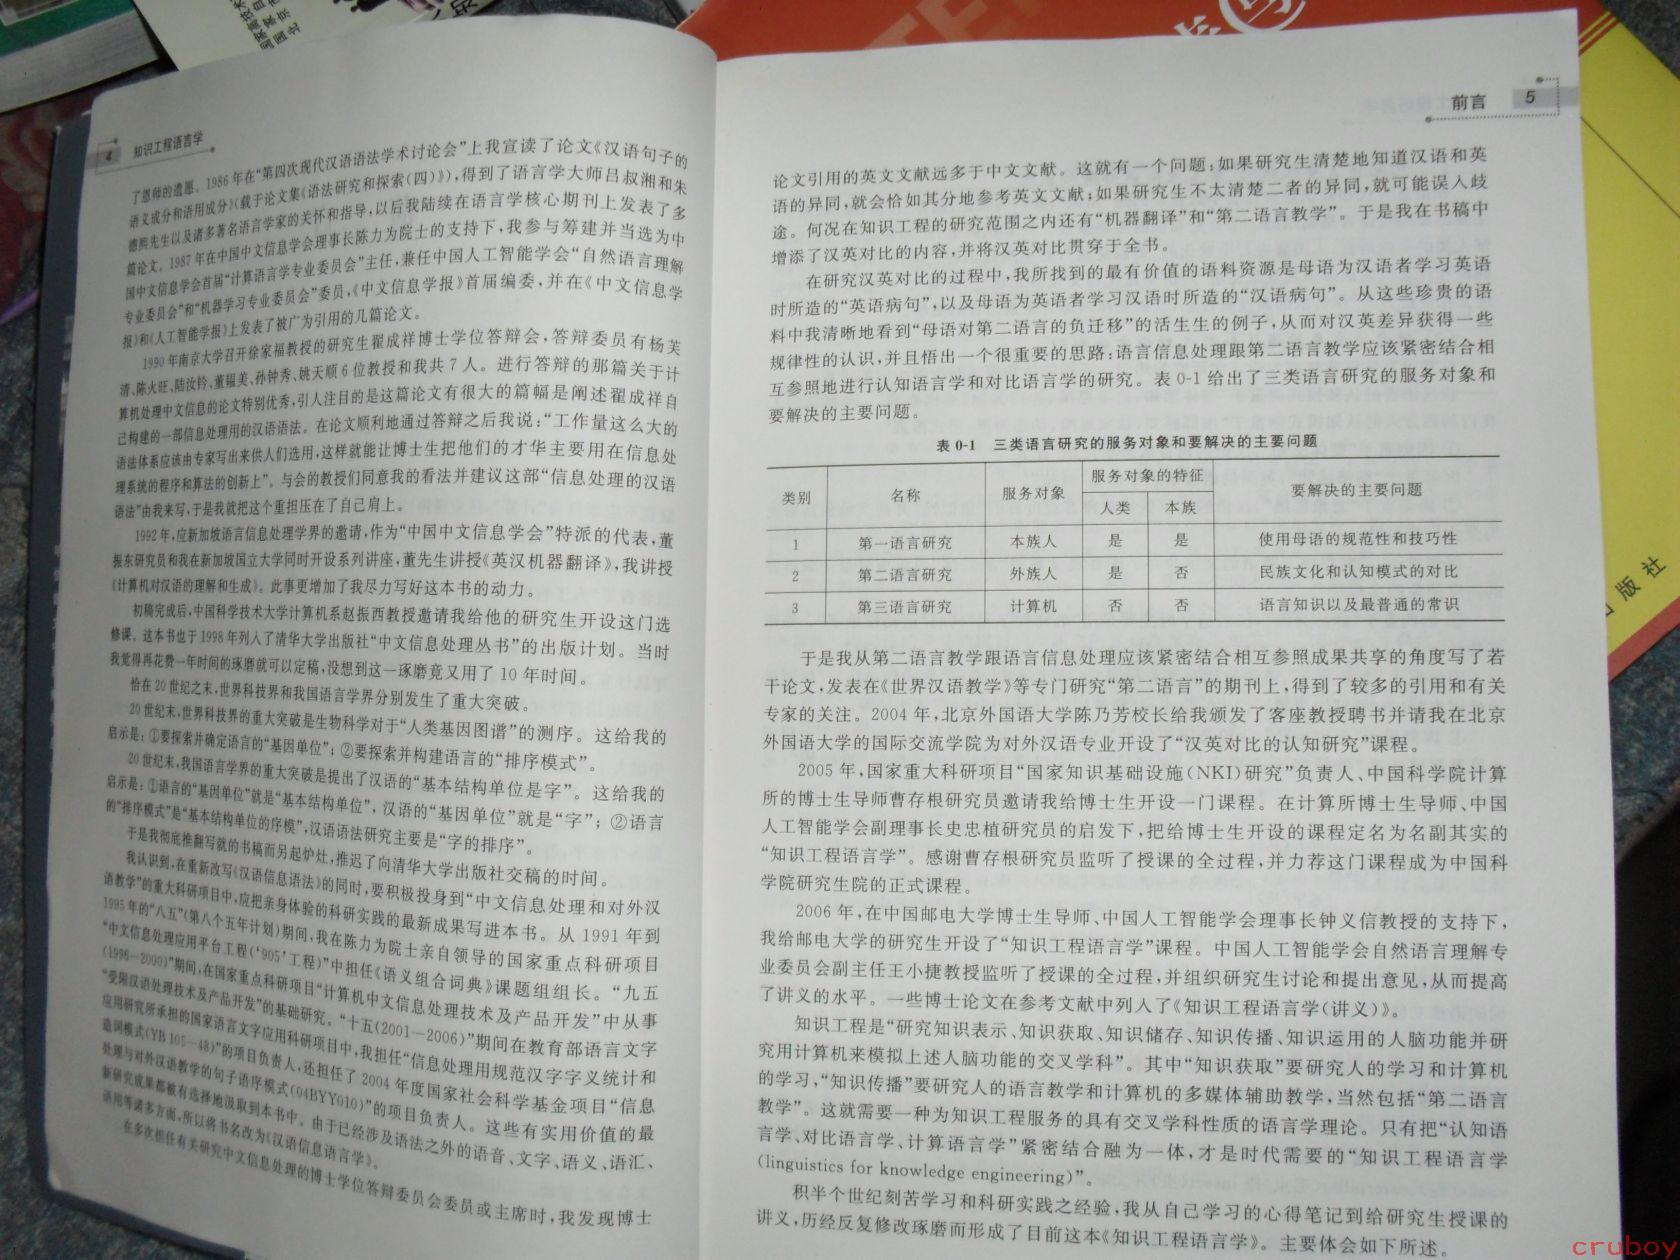 4 知识工程语言学
了恩师的遗愿。1986年在“第四次现代汉语语法学术讨论会”上我宣读了论文《汉语句子的
语义成分和语用成分》(载于论文集《语法研究和探索(四)》),得到了语言学大师吕叔湘和朱
德熙先生以及诸多著名语言学家的关怀和指导,以后我陆续在语言学核心期刊上发表了多
篇论文。1987年在中国中文信息学会理事长陈力为院士的支持下,我参与筹建并当选为中
国中文信息学会首届“计算语言学专业委员会”主任,兼任中国人工智能学会“自然语言理解
专业委员会”和“机器学习专业委员会”委员,《中文信息学报》首届编委,并在《中文信息学
报》和《人工智能学报》上发表了被广为引用的几篇论文。
1990年南京大学召开徐家福教授的研究生翟成祥博士学位答辩会,答辩委员有杨芙
清、陈火旺、陆汝钤、董韫美、孙钟秀、姚天顺6位教授和我共7人。进行答辩的那篇关于计
算机处理中文信息的论文特别优秀,引人注目的是这篇论文有很大的篇幅是阐述翟成祥自
己构建的一部信息处理用的汉语语法。在论文顺利地通过答辩之后我说:“工作量这么大的
语法体系应该由专家写出来供人们选用,这样就能让博士生把他们的才华主要用在信息处
理系统的程序和算法的创新上”。与会的教授们同意我的看法并建议这部“信息处理的汉语
语法”由我来写,于是我就把这个重担压在了自己肩上。
1992年,应新加坡语言信息处理学界的邀请,作为“中国中文信息学会”特派的代表,董
振东研究员和我在新加坡国立大学同时开设系列讲座,董先生讲授《英汉机器翻译》,我讲授
《计算机对汉语的理解和生成》。此事更增加了我尽力写好这本书的动力。
初稿完成后,中国科学技术大学计算机系赵振西教授邀请我给他的研究生开设这门选
修课。这本书也于1998年列入了清华大学出版社“中文信息处理丛书”的出版计划。当时
我觉得再花费一年时间的琢磨就可以定稿,没想到这一琢磨竟又用了10年时间。
恰在20世纪之末,世界科技界和我国语言学界分别发生了重大突破。
20世纪末,世界科技界的重大突破是生物科学对于“人类基因图谱”的测序。这给我的
启示是:①要探索并确定语言的“基因单位”;②要探索并构建语言的“排序模式”。
20世纪末,我国语言学界的重大突破是提出了汉语的“基本结构单位是字”。这给我的
启示是:①语言的“基因单位”就是“基本结构单位”,汉语的“基因单位”就是“字”;②语言
的“排序模式”是“基本结构单位的序模”,汉语语法研究主要是“字的排序”。
于是我彻底推翻写就的书稿而另起炉灶,推迟了向清华大学出版社交稿的时间。
我认识到,在重新改写《汉语信息语法》的同时,要积极投身到“中文信息处理和对外汉
语教学”的重大科研项目中,应把亲身体验的科研实践的最新成果写进本书。从1991年到
1995年的“八五”(第八个五年计划)期间,我在陈力为院士亲自领导的国家重点科研项目
“中文信息处理应用平台工程(‘905’工程)”中担任《语义组合词典》课题组组长。“九五
(1996—2000)”期间,在国家重点科研项目“计算机中文信息处理技术及产品开发”中从事
“受限汉语处理技术及产品开发”的基础研究。“十五(2001—2006)”期间在教育部语言文字
应用研究所承担的国家语言文字应用科研项目中,我担任“信息处理用规范汉字字义统计和
造词模式(YB 105—48)”的项目负责人,还担任了2004年度国家社会科学基金项目“信息
处理与对外汉语教学的句子语序模式(04BYY010)”的项目负责人。这些有实用价值的最
新研究成果都被有选择地汲取到本书中。由于已经涉及语法之外的语音、文字、语义、语汇、
语用等诸多方面,所以将书名改为《汉语信息语言学》。
在多次担任有关研究中文信息处理的博士学位答辩委员会委员或主席时,我发现博士
前言 5
论文引用的英文文献远多于中文文献。这就有一个问题:如果研究生清楚地知道汉语和英
语的异同,就会恰如其分地参考英文文献;如果研究生不太清楚二者的异同,就可能误人歧
途。何况在知识工程的研究范围之内还有“机器翻译”和“第二语言教学”。于是我在书稿中
增添了汉英对比的内容,并将汉英对比贯穿于全书。
在研究汉英对比的过程中,我所找到的最有价值的语料资源是母语为汉语者学习英语
时所造的“英语病句”,以及母语为英语者学习汉语时所造的“汉语病句”。从这些珍贵的语
料中我清晰地看到“母语对第二语言的负迁移”的活生生的例子,从而对汉英差异获得一些
规律性的认识,并且悟出一个很重要的思路:语言信息处理跟第二语言教学应该紧密结合相
互参照地进行认知语言学和对比语言学的研究。表0-1给出了三类语言研究的服务对象和
要解决的主要问题。
表0-1 三类语言研究的服务对象和要解决的主要问题
类别 名称 服务对象 服务对象的特征 要解决的主要问题
人类 本族
1 第一语言研究 本族人 是 是 使用母语的规范性和技巧性
2 第二语言研究 外族人 是 否 民族文化和认知模式的对比
3 第三语言研究 计算机 否 否 语言知识以及最普通的常识
于是我从第二语言教学跟语言信息处理应该紧密结合相互参照成果共享的角度写了若
干论文,发表在《世界汉语教学》等专门研究“第二语言”的期刊上,得到了较多的引用和有关
专家的关注。2004年,北京外国语大学陈乃芳校长给我颁发了客座教授聘书并请我在北京
外国语大学的国际交流学院为对外汉语专业开设了“汉英对比的认知研究”课程。
2005年,国家重大科研项目“国家知识基础设施(NKI)研究”负责人、中国科学院计算
所的博士生导师曹存根研究员邀请我给博士生开设一门课程。在计算所博士生导师、中国
人工智能学会副理事长史忠植研究员的启发下,把给博士生开设的课程定名为名副其实的
“知识工程语言学”。感谢曹存根研究员监听了授课的全过程,并力荐这门课程成为中国科
学院研究生院的正式课程。
2006年,在中国邮电大学博士生导师、中国人工智能学会理事长钟义信教授的支持下,
我给邮电大学的研究生开设了“知识工程语言学”课程。中国人工智能学会自然语言理解专
业委员会副主任王小捷教授监听了授课的全过程,并组织研究生讨论和提出意见,从而提高
了讲义的水平。一些博士论文在参考文献中列入了《知识工程语言学(讲义)》。
知识工程是“研究知识表示、知识获取、知识储存、知识传播、知识运用的人脑功能并研
究用计算机来模拟上述人脑功能的交叉学科”。其中“知识获取”要研究人的学习和计算机
的学习,“知识传播”要研究人的语言教学和计算机的多媒体辅助教学,当然包括“第二语言
教学”。这就需要一种为知识工程服务的具有交叉学科性质的语言学理论。只有把“认知语
言学、对比语言学、计算语言学”紧密结合融为一体,才是时代需要的“知识工程语言学
(linguistics for knowledge engineering)”。
积半个世纪刻苦学习和科研实践之经验,我从自己学习的心得笔记到给研究生授课的
讲义,历经反复修改琢磨而形成了目前这本《知识工程语言学》。主要体会如下所述。
版社
cruboy